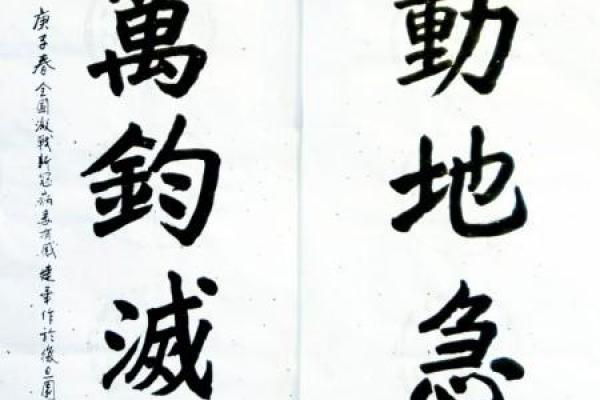 動地急
萬鈞滅
庚子春全國激戰新冠病毒有感建華作於復旦園